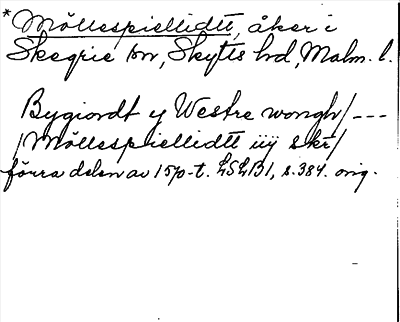 * Möllespiellidtt, åker i
Skegrie sn, Skytts hd, Malm. l.
Bygiordt y Westre wongh/---
/Möllespiellidtt iiij skr/
förra delen av 1570-t. LSLB1, s. 384. orig.